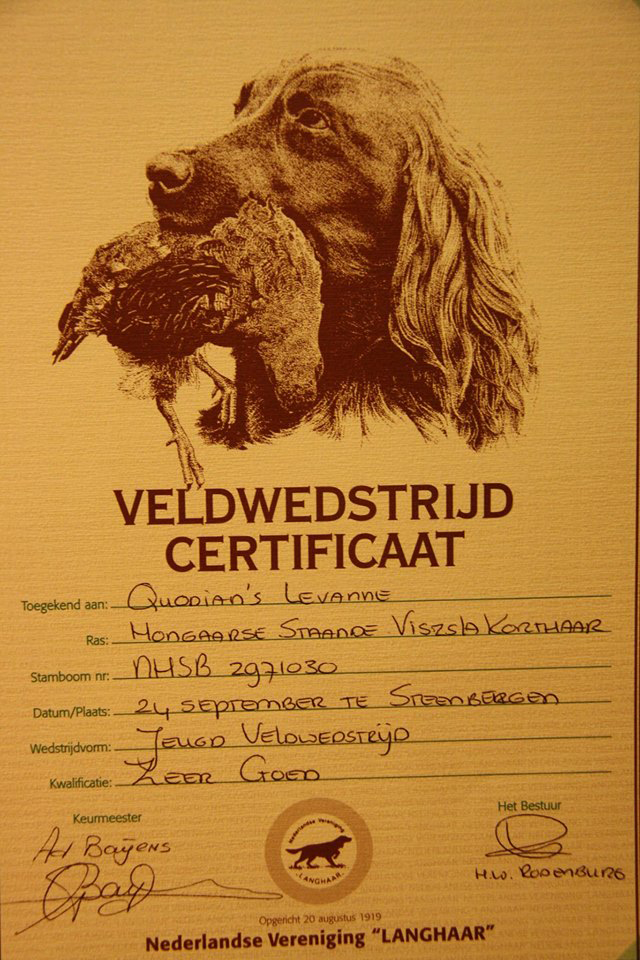 VELDWEDSTRIJD
CERTIFICAAT
Toegekend aan: Quodian's Levanne
Ras: Hongaarse Staande Viszsla Korthaar
Stamboom nr: NHSB 2971030
Datum/Plaats: 24 september te Steenbergen
Wedstrijdvorm: Jeugd Veldwedstrijd
Kwalificatie: Zeer Goed
Keurmeester
Ad Baijens
Het Bestuur
H.W. Rodenburg
Nederlandse Vereniging
"LANGHAAR"
Opgericht 20 augustus 1919
Nederlandse Vereniging "LANGHAAR"